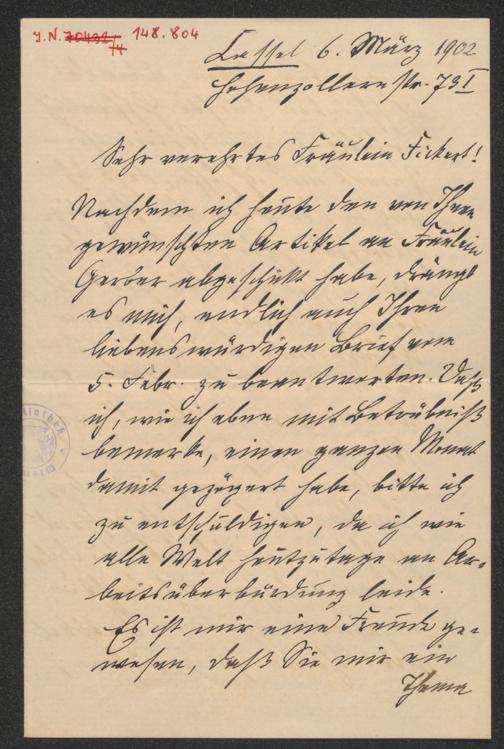 J.N. 70432/4 148.804
Cassel 6. März 1902
Hohenzollernstr. 73 I
Sehr verehrtes Fräulein Fickert!
Nachdem ich heute den von Ihnen
gewünschten Artikel an Fräulein
Gerber abgeschickt habe, drängt
es mich, endlich auch Ihren
liebenswürdigen Brief vom
5. Febr. zu beantworten. Daß
ich, wie ich eben mit Betrübniß
bemerke, einen ganzen Monat
damit gezögert habe, bitte ich
zu entschuldigen, da ich wie
alle Welt heutzutage an Ar-
beitsüberbürdung leide.
Es ist mir eine Freude ge-
wesen, daß Sie mir ein
Thema